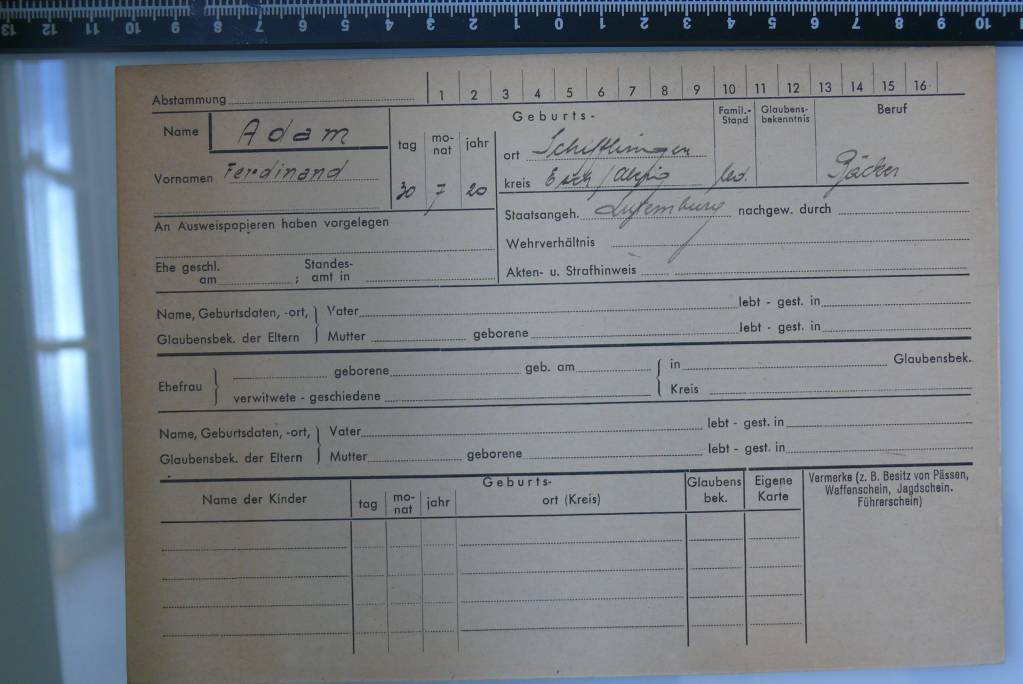 13 12 11 10 9 8 7 6 5 4 3 2 1 0 1 2 3 4 5 6 7 8 9 10
Abstammung 1 2 3 4 5 6 7 8 9 10 11 12 13 14 15 16
Name Adam
Vornamen Ferdinand
Geburts-
tag mo-nat jahr
30 7 20
ort Schifflingen
kreis Esch /Alzig
Famil.-Stand
led.
Glaubens-bekenntnis
Beruf
Bäcker
An Ausweispapieren haben vorgelegen
Staatsangeh. Luxemburg nachgew. durch
Wehrverhältnis
Ehe geschl. am ; Standes-amt in
Akten- u. Strafhinweis
Name, Geburtsdaten, -ort, Vater lebt - gest. in
Glaubensbek. der Eltern Mutter geborene lebt - gest. in
Ehefrau geborene geb. am in Glaubensbek.
verwitwete - geschiedene Kreis
Name, Geburtsdaten, -ort, Vater lebt - gest. in
Glaubensbek. der Eltern Mutter geborene lebt - gest. in
Name der Kinder
Geburts-
tag mo-nat jahr ort (Kreis)
Glaubens bek.
Eigene Karte
Vermerke (z. B. Besitz von Pässen,
Waffenschein, Jagdschein.
Führerschein)